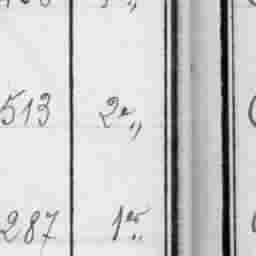 513 2e „
287 1er „